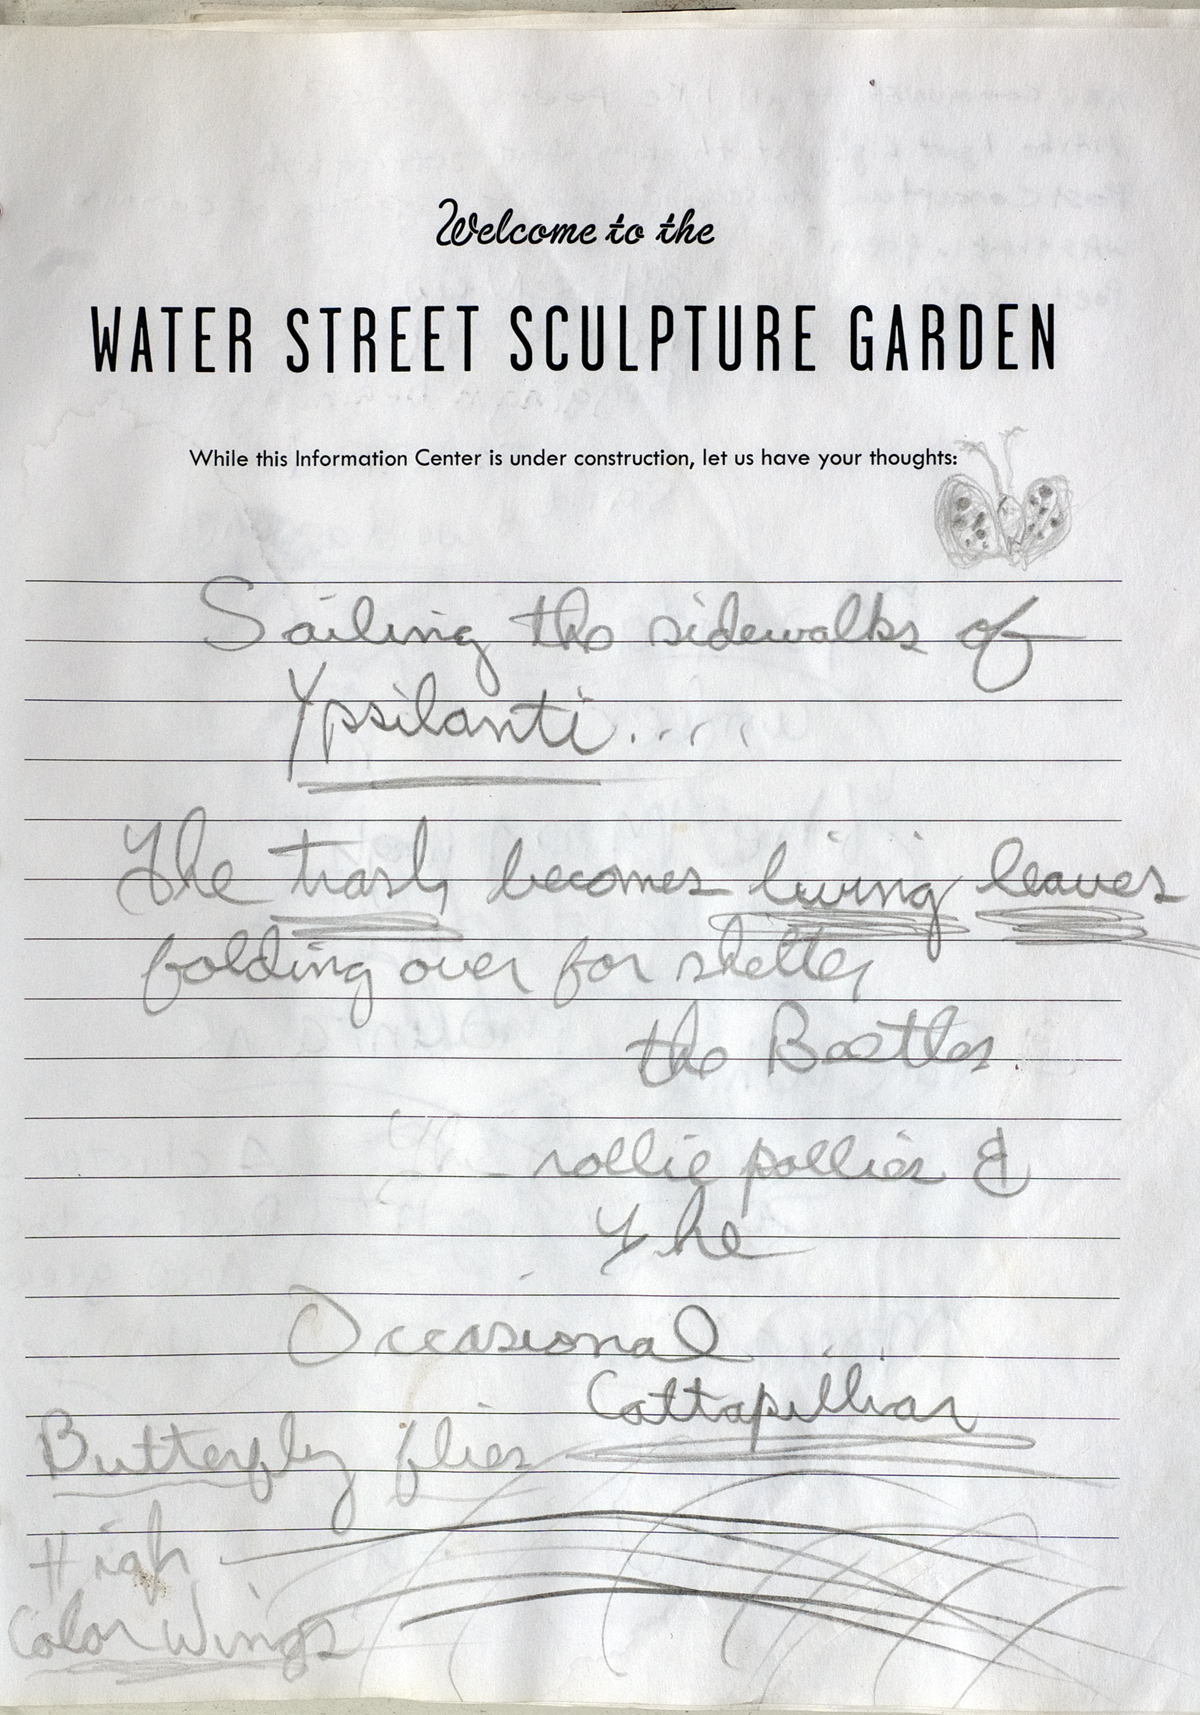 Welcome to the
WATER STREET SCULPTURE GARDEN
While this Information Center is under construction, let us have your thoughts:
Sailing the sidewalks of
Ypsilanti.....
The trash becomes living leaves
folding over for shelter
the Beetles.
rollie pollies &
The
Occasional
Cattapilliar
Butterfly flies
High
Color Wings